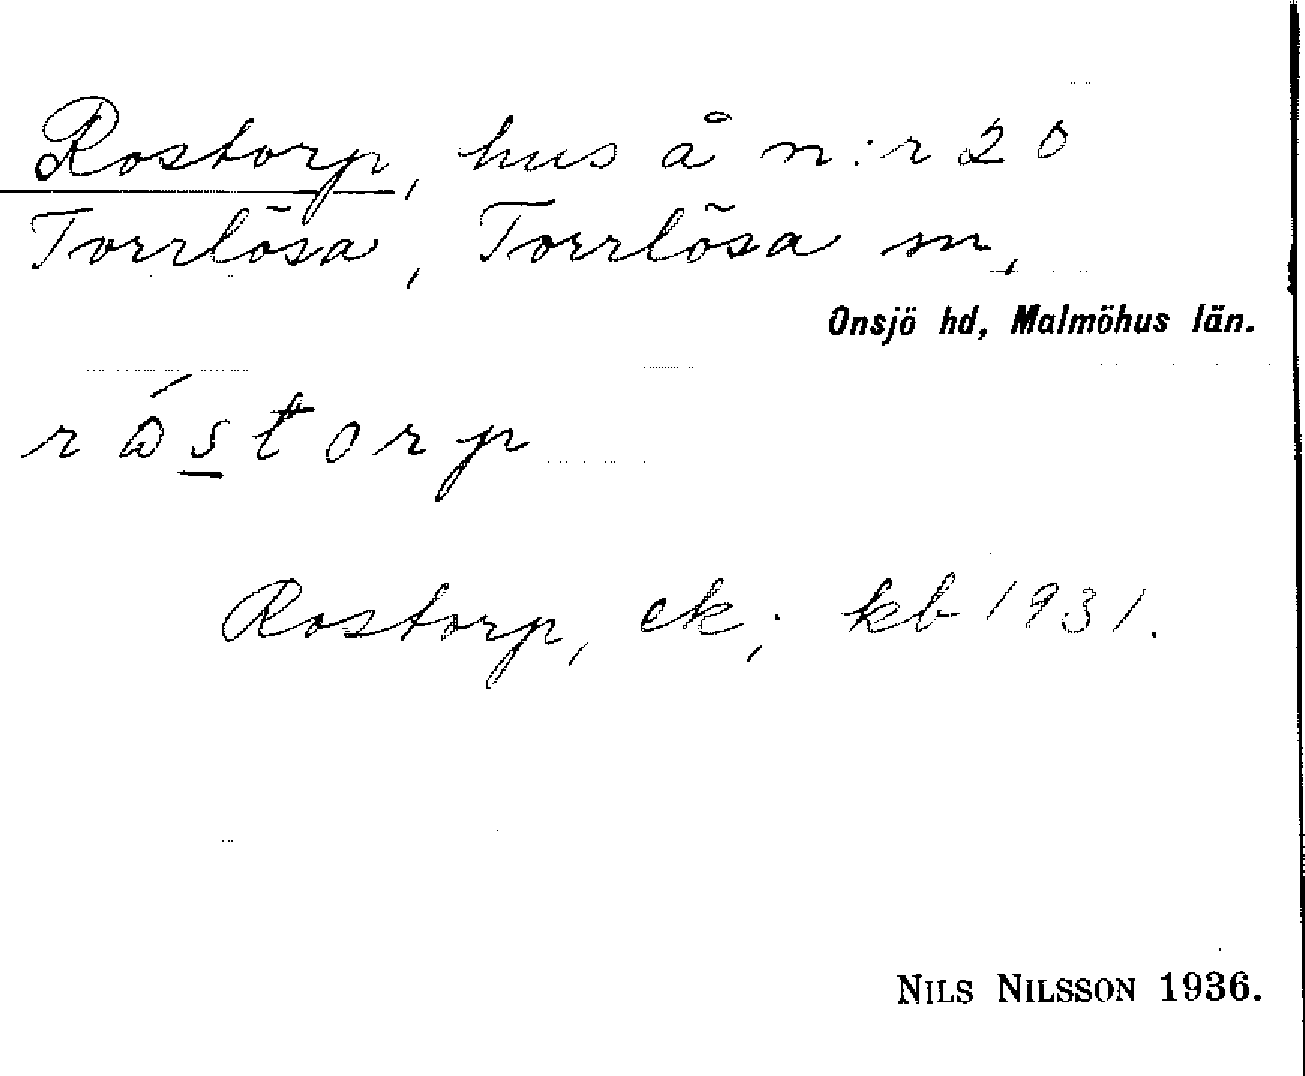 Rostorp, hus å n:r 20
Torrlösa, Torrlösa sn,
Onsjö hd, Malmöhus län.
róstorp
Rostorp, ek; kb 1931.
NILS NILSSON 1936.